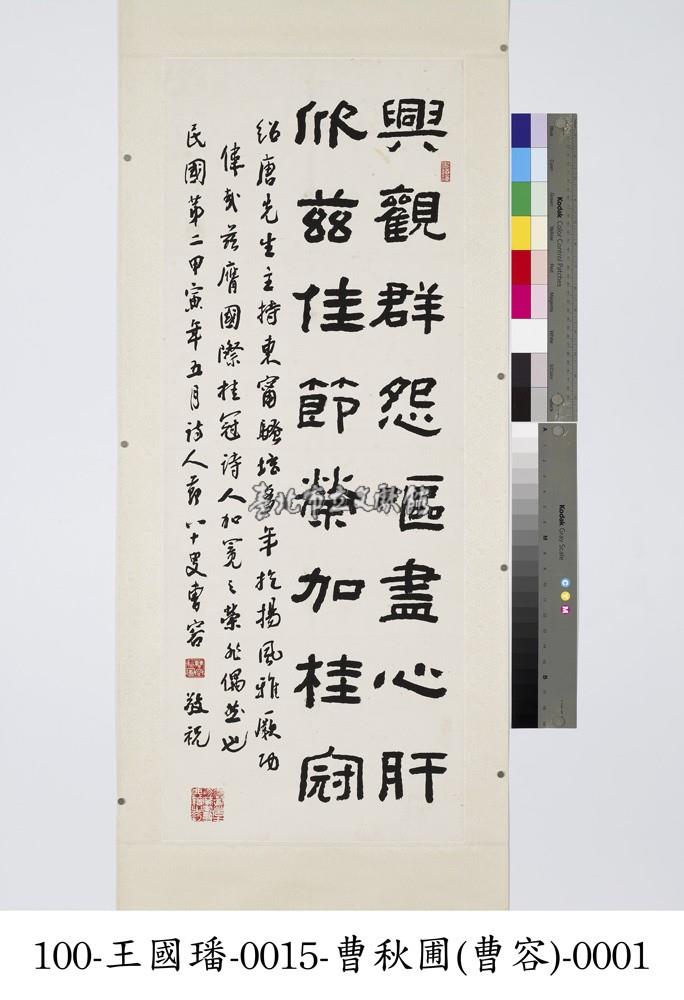 興觀群怨區盡心肝
欣茲佳節榮加桂冠
紹唐先生主持東甯騷壇多年於揚風雅厥功
偉哉茲膺國際桂冠詩人加冕之榮非偶然也
民國第二甲寅年五月詩人節八十叟曹容 敬祝
臺北市立文獻館
Kodak Color Control Patches
Blue
Cyan
Green
Yellow
Red
Magenta
White
3/Color
Black
Kodak Gray Scale
C
Y
M
A
M
B
100-王國璠-0015-曹秋圃(曹容)-0001